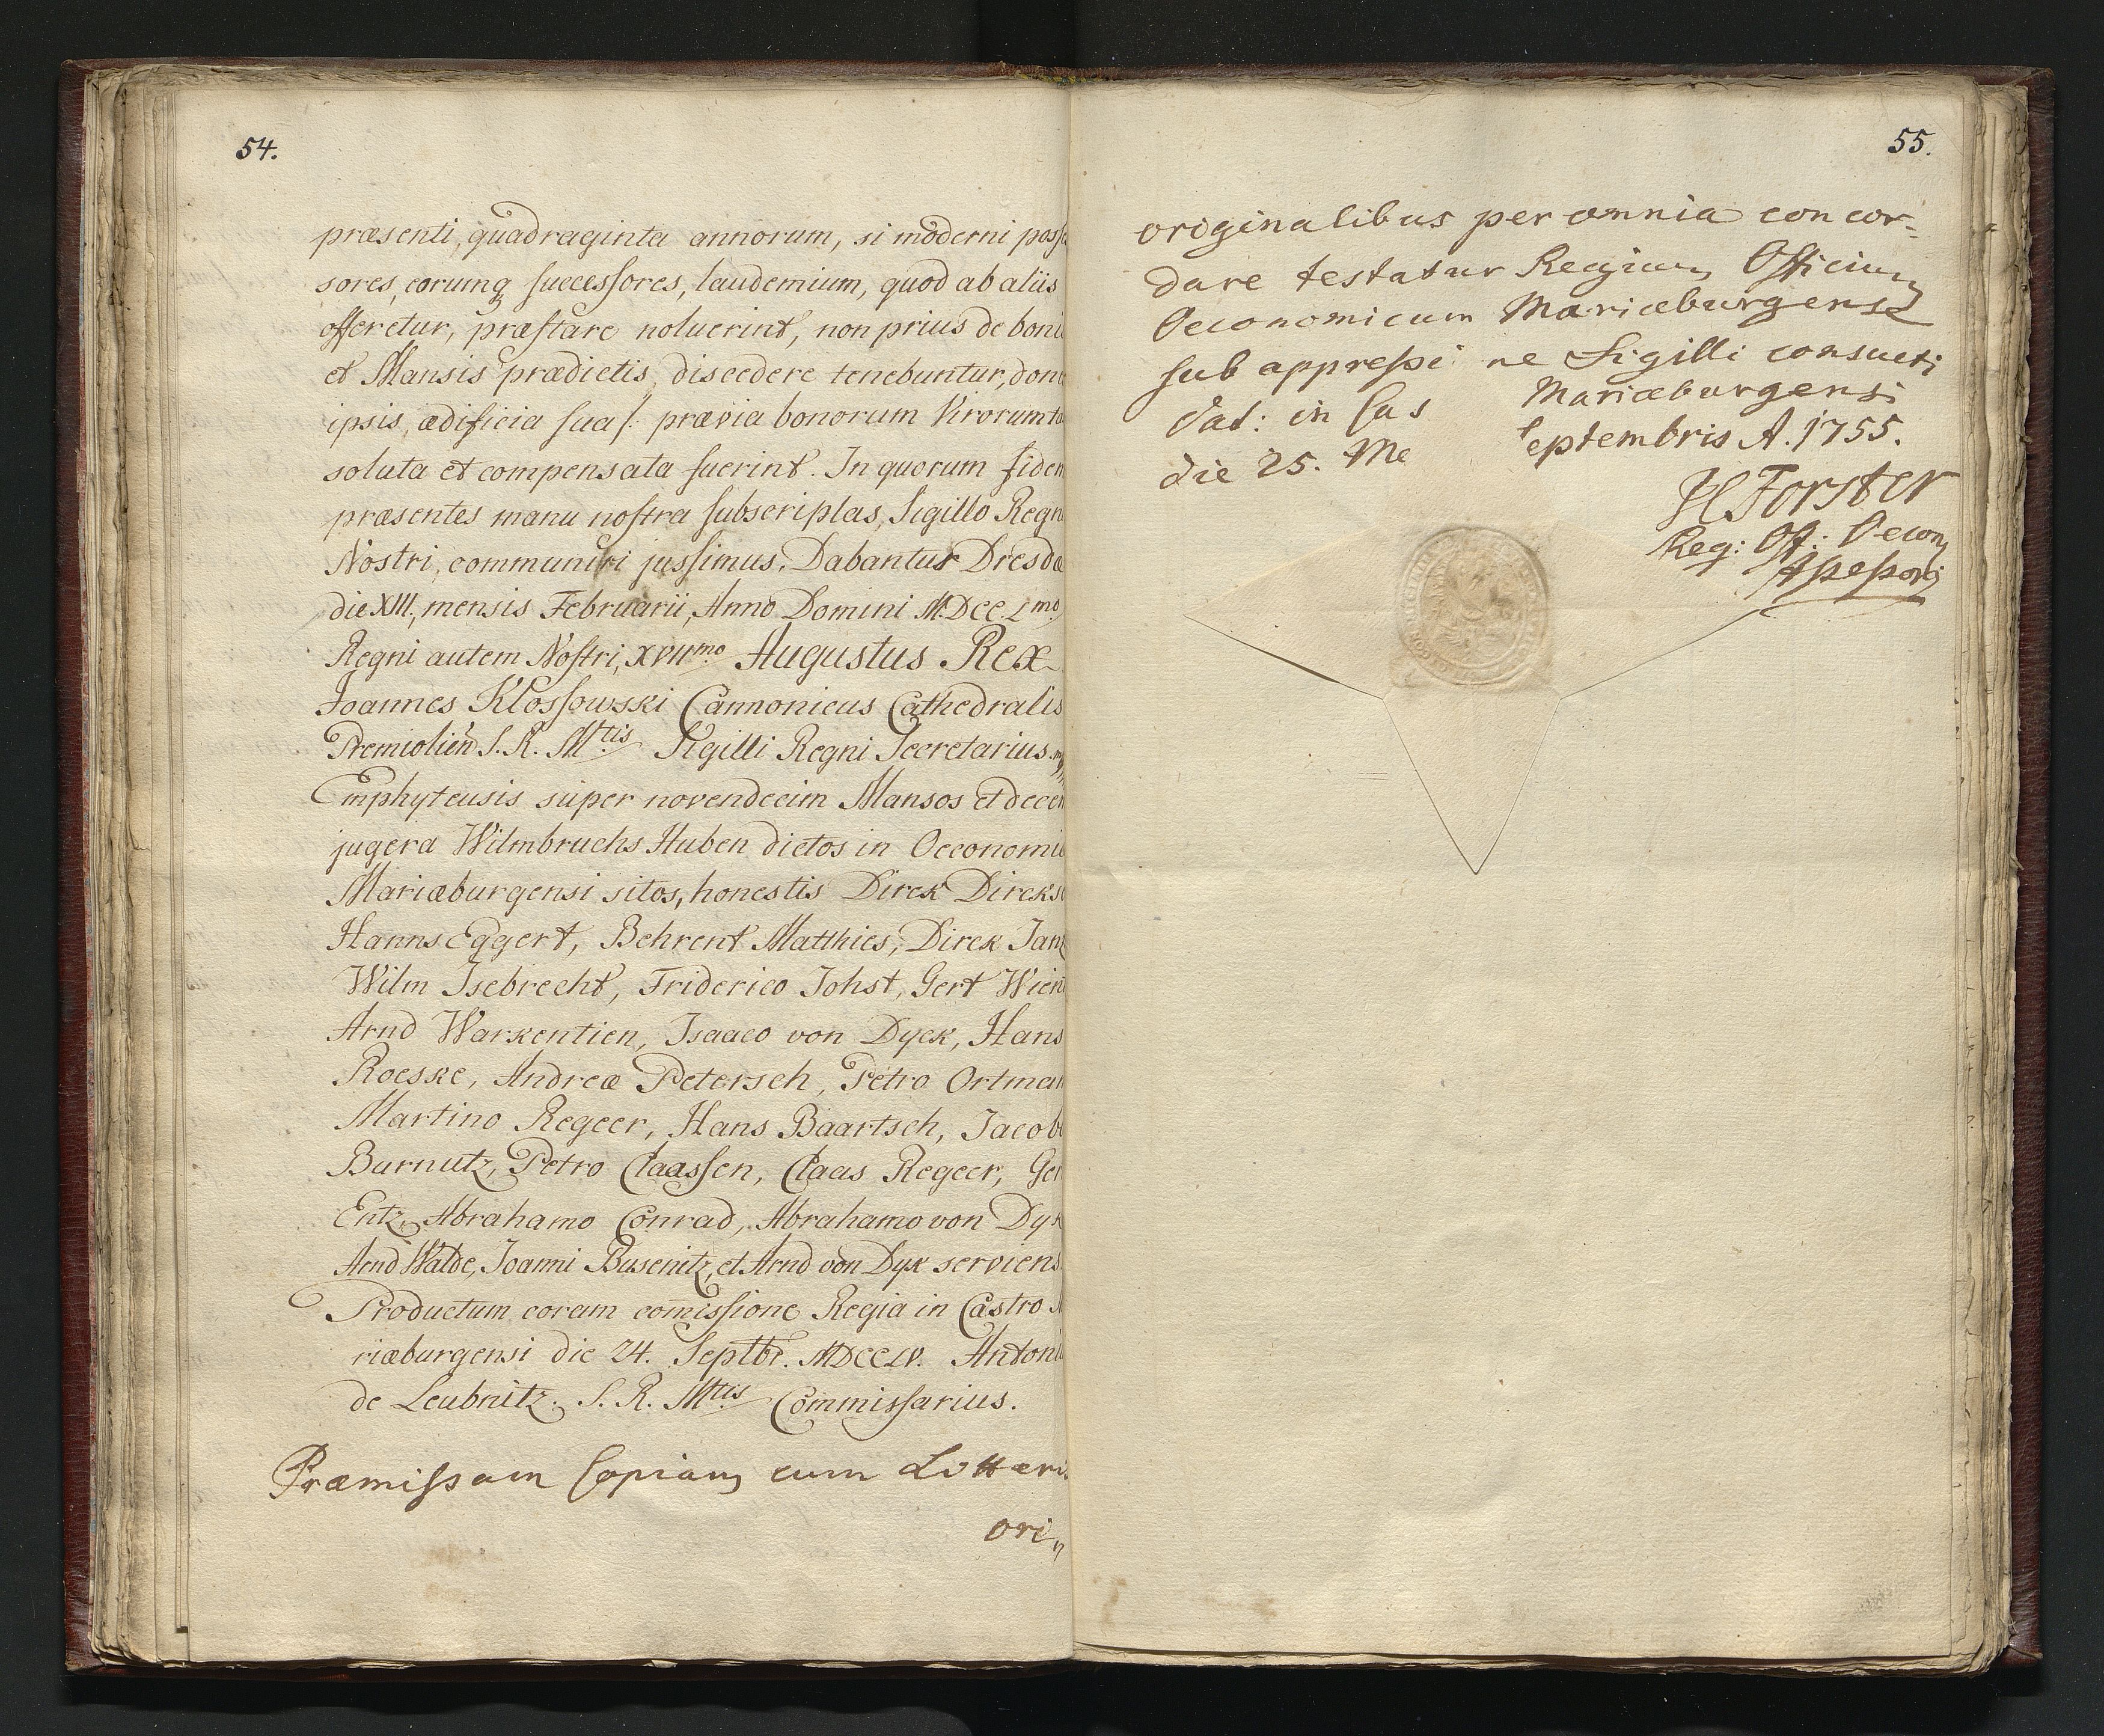 54.
præsenti, quadraginta annorum, si moderni posse
sores, eorumq successores, laudemium, quod ab aliis
offeretur, præstare noluerint, non prius de boni
et Mansis prædictis, discedere tenebuntur, done
ipsis, ædificia sua /: prævia bonorum Virorum ta
soluta et compensata fuerint. In quorum fidem
præsentes manu nostra subscriptas, Sigillo Regn
Nostri, communiri jussimus. Dabantur Dresdæ
die XIII, mensis Februarii, Anno Domini M.DCC.Lmo.
Regni autem Nostri, XVIImo. Augustus Rex
Joannes Klossowski Cannonicus Cathedralis
Premislien S. R. Mttis Sigilli Regni Secretarius.
Emphyteusis super novendecim Mansos et decem
jugera Wilmbruchs Huben dictos in Oeconomia
Mariæburgensi sitos, honestis Direk Direkse
Hanns Eggert, Behrent Matthies, Direk Jantz
Wilm Isebrecht, Friderico Johst, Gert Wien
Arnd Warkentien, Isaaco von Dyck, Hans
Roeske, Andreæ Petersch, Petro Ortman
Martino Regeer, Hans Baartsch, Jacobo
Burnutz, Petro Claassen, Claas Regeer, Ger
Entz, Abrahamo Conrad, Abrahamo von Dyk
Arnd Walde, Joanni Busenitz, et Arnd von Dyk serviens
Productum coram comissione Regia in Castro M
riæburgensi die 24. Septbr. MDCCLV. Antoni
de Leubnitz. S. R. Mttis Commissarius.
Præmissam Copiam cum Litteris
ori
55.
originalibus per omnia concor-
dare testatur Regium Officium
Oeconomicum Mariæburgense
sub appressi ne Sigilli consueti
Dat: in Cas Mariæburgensi
die 25. Me Septembris A. 1755.
H Forster
Reg: Off: Oecon
Assessor